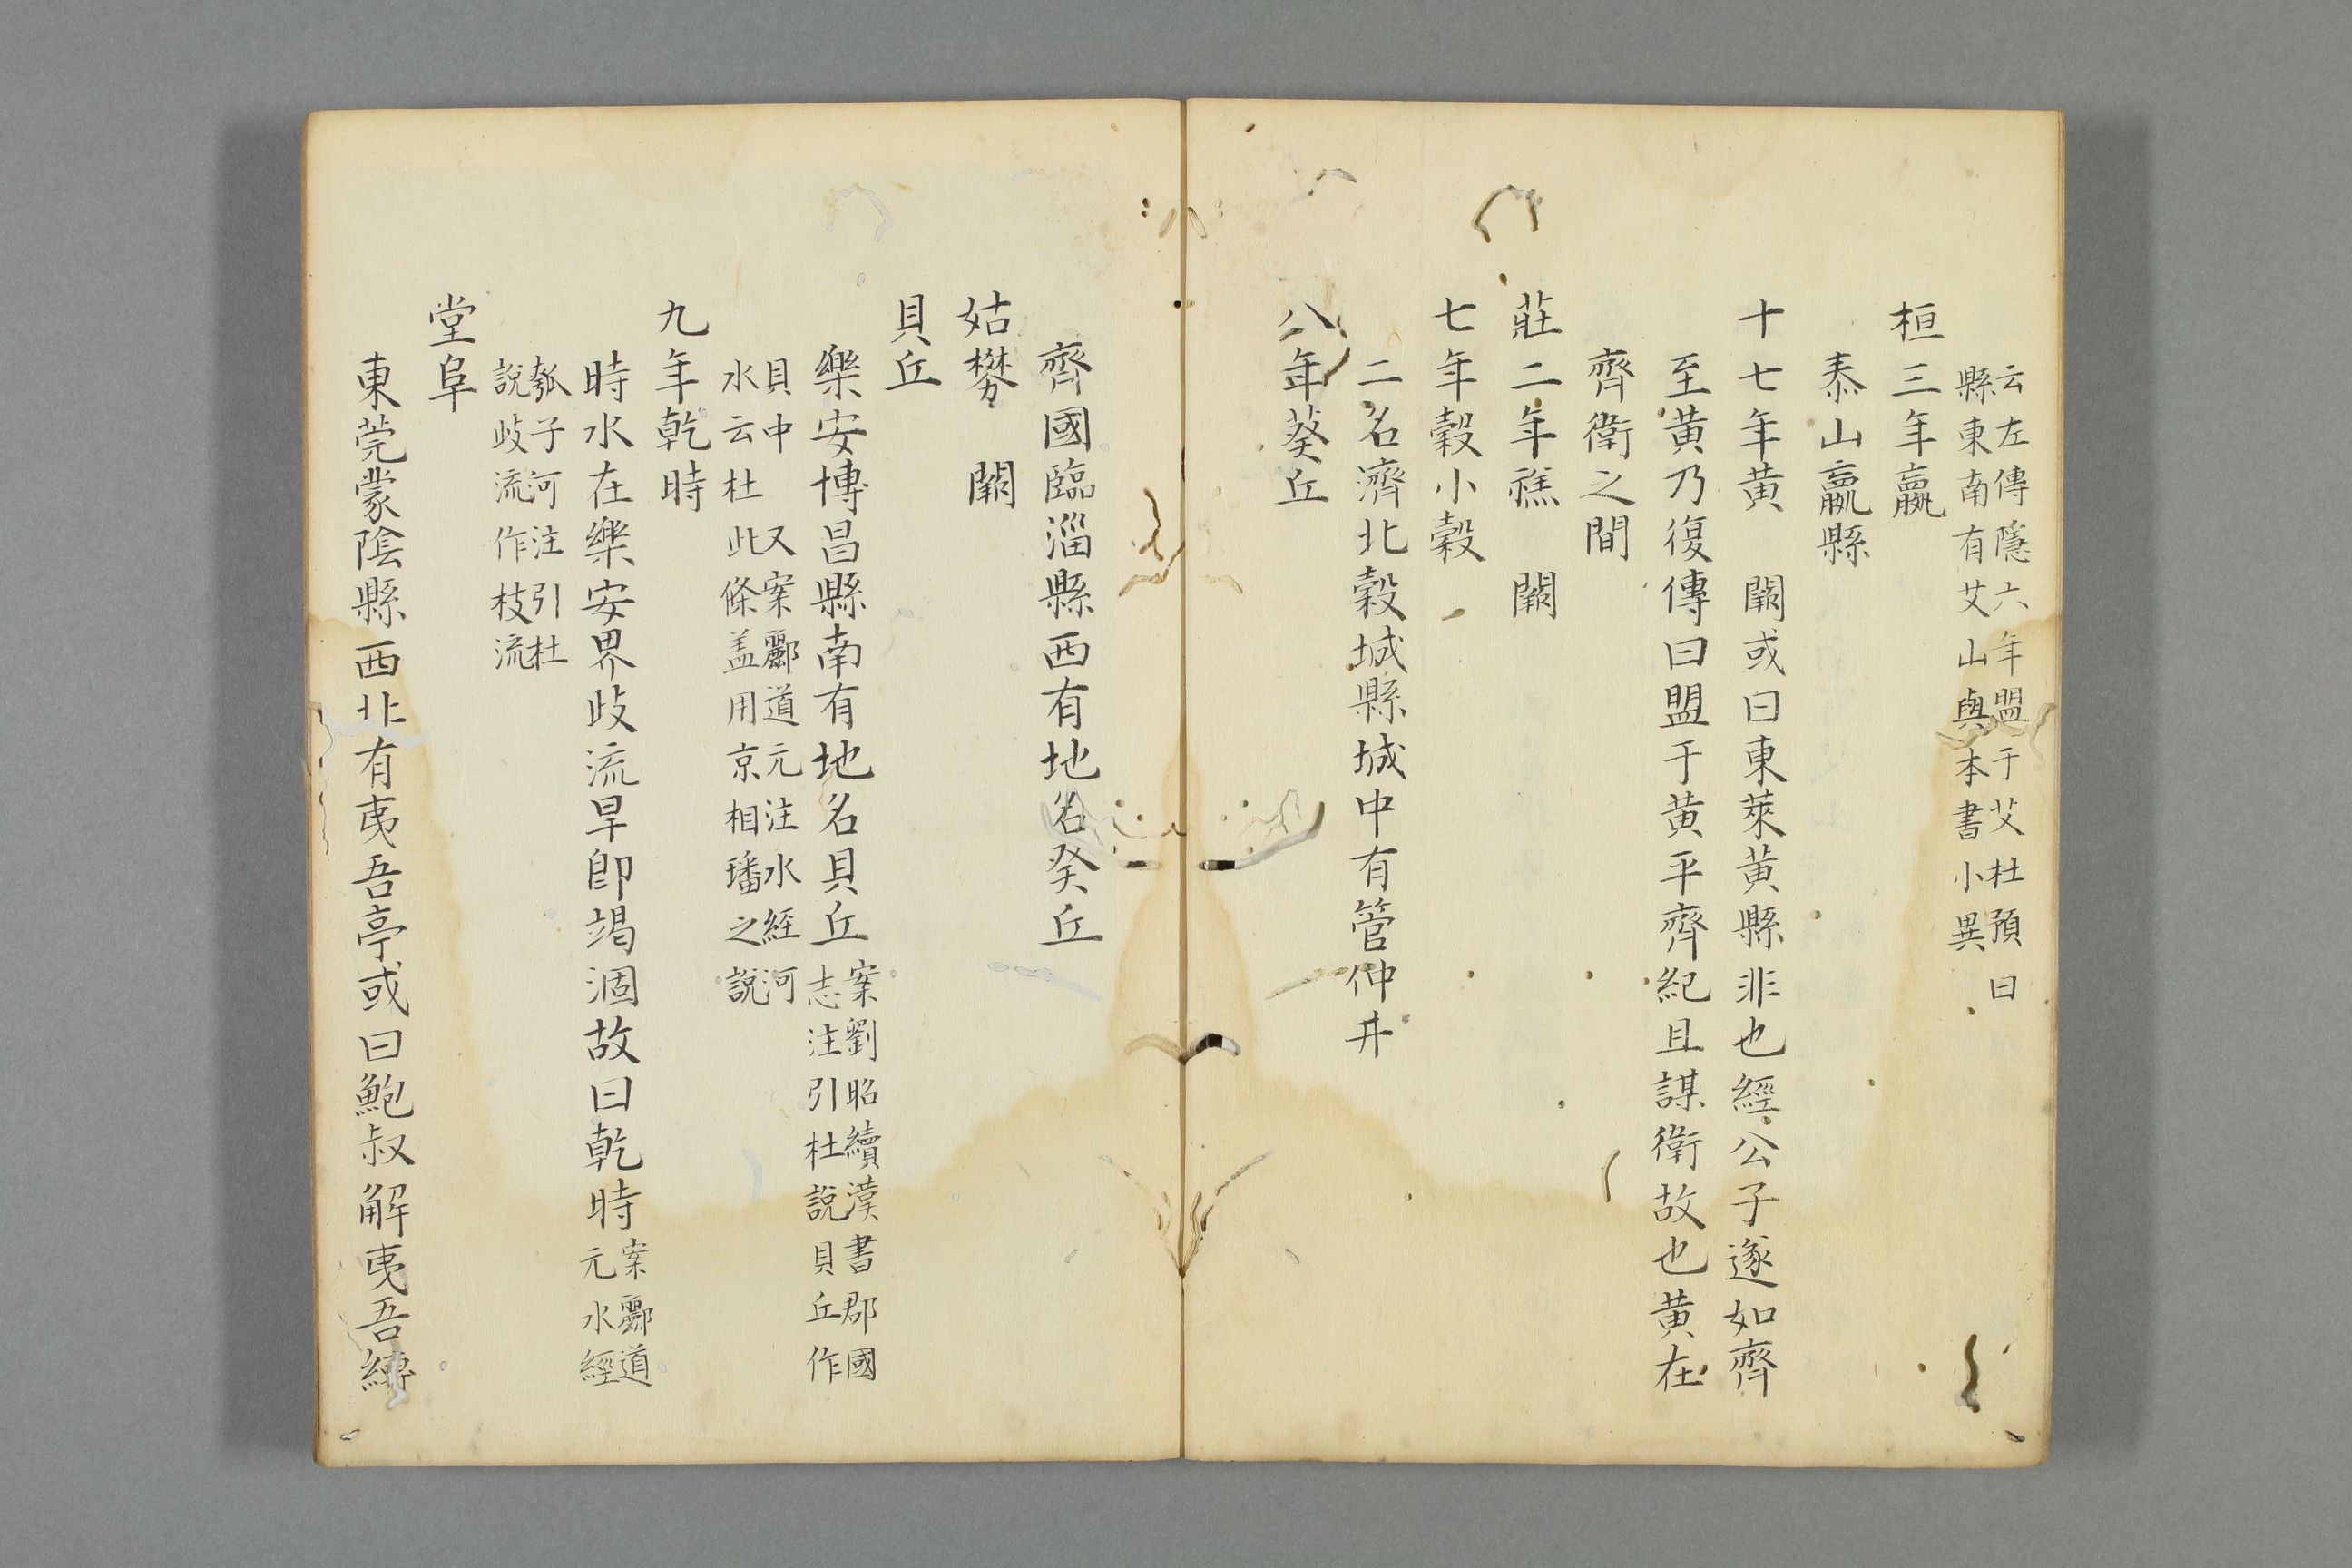 云左傳隱六年盟于艾杜預曰
縣東南有艾山與本書小異
桓三年嬴
泰山嬴縣
十七年黃　闕或曰東萊黃縣非也經公子遂如齊
至黃乃復傳曰盟于黃平齊紀且謀衛故也黃在
齊衛之間
莊二年禚　闕
七年穀小穀
二名濟北穀城縣城中有管仲井
八年葵丘
齊國臨淄縣西有地名葵丘
姑棼　闕
貝丘
樂安博昌縣南有地名貝丘
案劉昭續漢書郡國
志注引杜說貝丘作
貝中　又案酈道元注水經河
水云杜此條盖用京相璠之說
九年乾時
時水在樂安界歧流旱卽竭涸故曰乾時
案酈道
元水經
瓠子河注引杜
說歧流作枝流
堂阜
東莞蒙陰縣西北有夷吾亭或曰鮑叔解夷吾縛